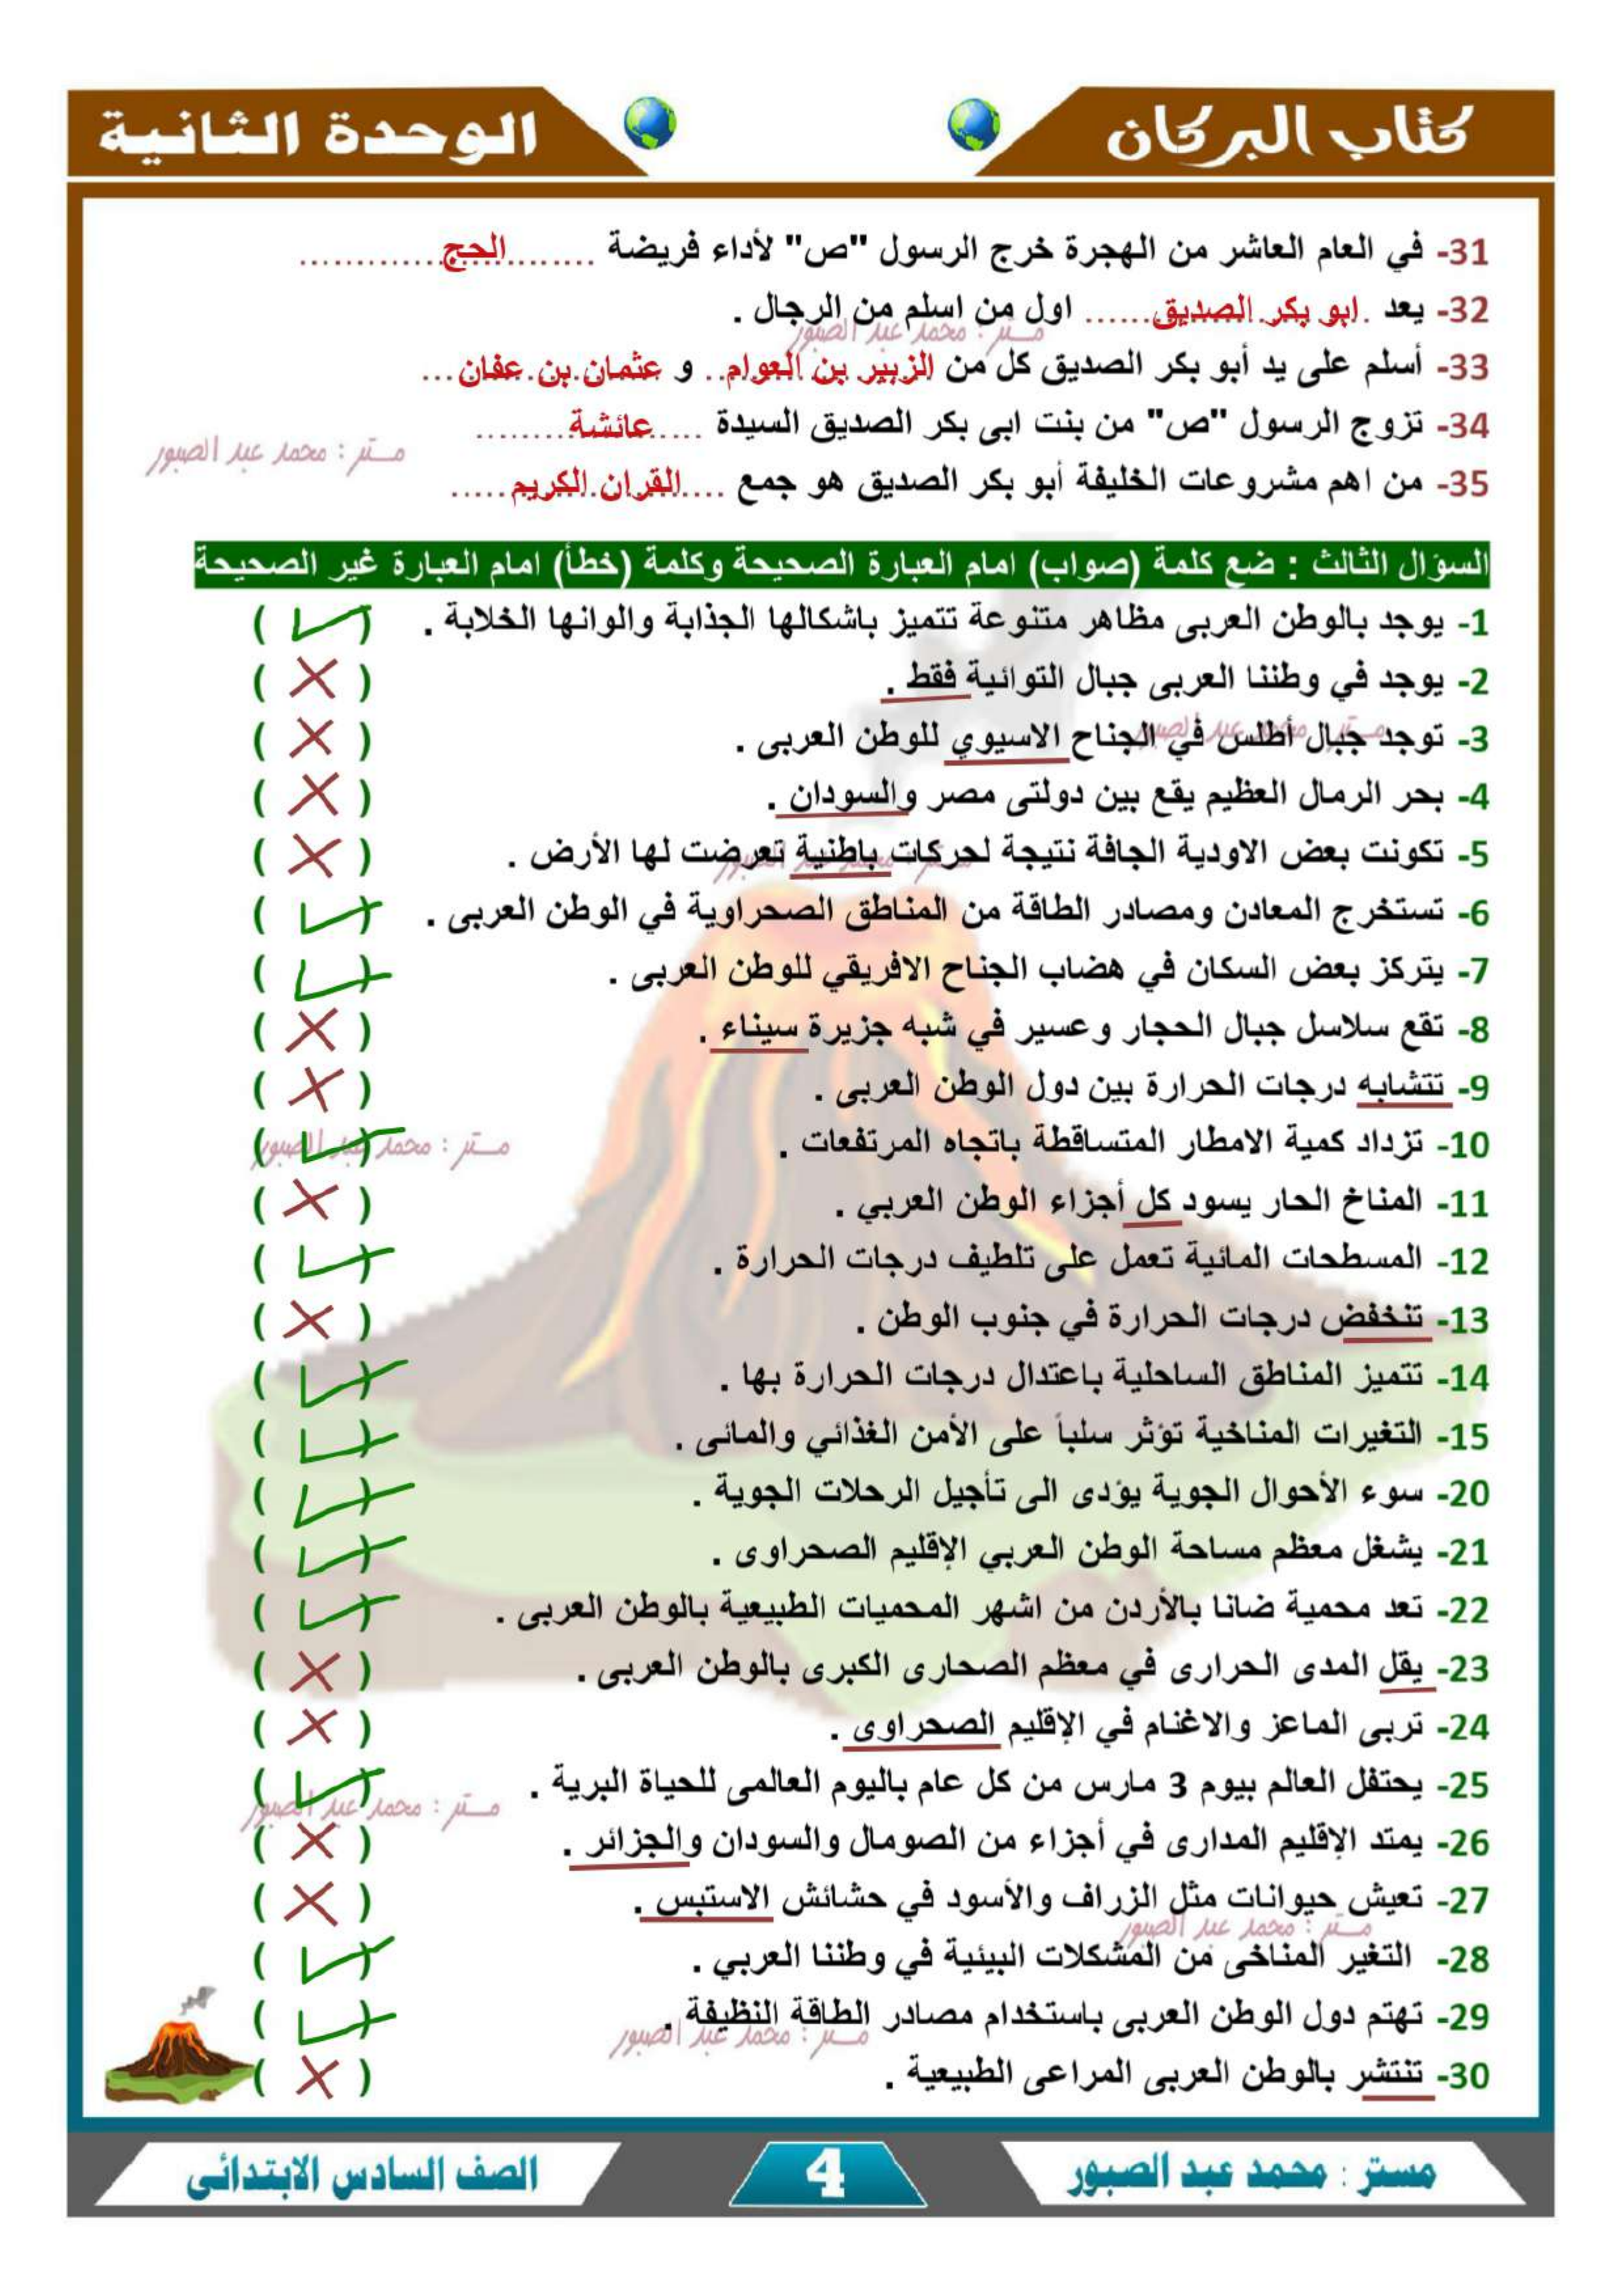 كتاب البركان
الوحدة الثانية
31- في العام العاشر من الهجرة خرج الرسول "ص" لأداء فريضة ........الحج............
32- يعد .ابو بكر الصديق...... اول من اسلم من الرجال .
مستر : محمد عبد الصبور
33- أسلم على يد أبو بكر الصديق كل من الزبير بن العوام.. و عثمان بن عفان...
34- تزوج الرسول "ص" من بنت ابى بكر الصديق السيدة .....عائشة........
مستر : محمد عبد الصبور
35- من اهم مشروعات الخليفة أبو بكر الصديق هو جمع ....القران الكريم.....
السؤال الثالث : ضع كلمة (صواب) امام العبارة الصحيحة وكلمة (خطأ) امام العبارة غير الصحيحة
1- يوجد بالوطن العربى مظاهر متنوعة تتميز باشكالها الجذابة والوانها الخلابة . ( ✓ )
2- يوجد في وطننا العربى جبال التوائية فقط . ( ✗ )
3- توجد جبال أطلس في الجناح الاسيوي للوطن العربى . ( ✗ )
مستر : محمد عبد الصبور
4- بحر الرمال العظيم يقع بين دولتى مصر والسودان . ( ✗ )
5- تكونت بعض الاودية الجافة نتيجة لحركات باطنية تعرضت لها الأرض . ( ✗ )
مستر : محمد عبد الصبور
6- تستخرج المعادن ومصادر الطاقة من المناطق الصحراوية في الوطن العربى . ( ✓ )
7- يتركز بعض السكان في هضاب الجناح الافريقي للوطن العربى . ( ✓ )
8- تقع سلاسل جبال الحجار وعسير في شبه جزيرة سيناء . ( ✗ )
9- تتشابه درجات الحرارة بين دول الوطن العربى . ( ✗ )
10- تزداد كمية الامطار المتساقطة باتجاه المرتفعات . ( ✓ )
مستر : محمد عبد الصبور
11- المناخ الحار يسود كل أجزاء الوطن العربي . ( ✗ )
12- المسطحات المائية تعمل على تلطيف درجات الحرارة . ( ✓ )
13- تنخفض درجات الحرارة في جنوب الوطن . ( ✗ )
14- تتميز المناطق الساحلية باعتدال درجات الحرارة بها . ( ✓ )
15- التغيرات المناخية تؤثر سلباً على الأمن الغذائي والمائى . ( ✓ )
20- سوء الأحوال الجوية يؤدى الى تأجيل الرحلات الجوية . ( ✓ )
21- يشغل معظم مساحة الوطن العربي الإقليم الصحراوى . ( ✓ )
22- تعد محمية ضانا بالأردن من اشهر المحميات الطبيعية بالوطن العربى . ( ✓ )
23- يقل المدى الحرارى في معظم الصحارى الكبرى بالوطن العربى . ( ✗ )
24- تربى الماعز والاغنام في الإقليم الصحراوى . ( ✗ )
25- يحتفل العالم بيوم 3 مارس من كل عام باليوم العالمى للحياة البرية . ( ✓ )
مستر : محمد عبد الصبور
26- يمتد الإقليم المدارى في أجزاء من الصومال والسودان والجزائر . ( ✗ )
27- تعيش حيوانات مثل الزراف والأسود في حشائش الاستبس . ( ✗ )
مستر : محمد عبد الصبور
28- التغير المناخى من المشكلات البيئية في وطننا العربي . ( ✓ )
29- تهتم دول الوطن العربى باستخدام مصادر الطاقة النظيفة . ( ✓ )
مستر : محمد عبد الصبور
30- تنتشر بالوطن العربى المراعى الطبيعية . ( ✗ )
مستر : محمد عبد الصبور
4
الصف السادس الابتدائى